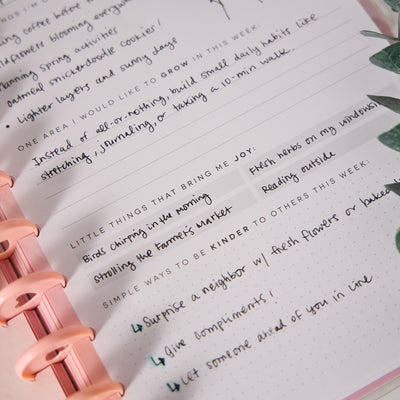 THINGS I'M
ing coffee before
wildflowers blooming everyw
Planning spring activities
oatmeal snickerdoodle cookies!
• Lighter layers and sunny days
ONE AREA I WOULD LIKE TO GROW IN THIS WEEK:
Instead of all-or-nothing, build small daily habits like
stretching, journaling, or taking a 10-min walk.
LITTLE THINGS THAT BRING ME JOY:
Birds chirping in the morning
Fresh herbs on my windows
Strolling the Farmer's Market
Reading outside
SIMPLE WAYS TO BE KINDER TO OTHERS THIS WEEK:
↳ Surprise a neighbor w/ fresh flowers or baked
↳ Give compliments!
↳ Let someone ahead of you in line